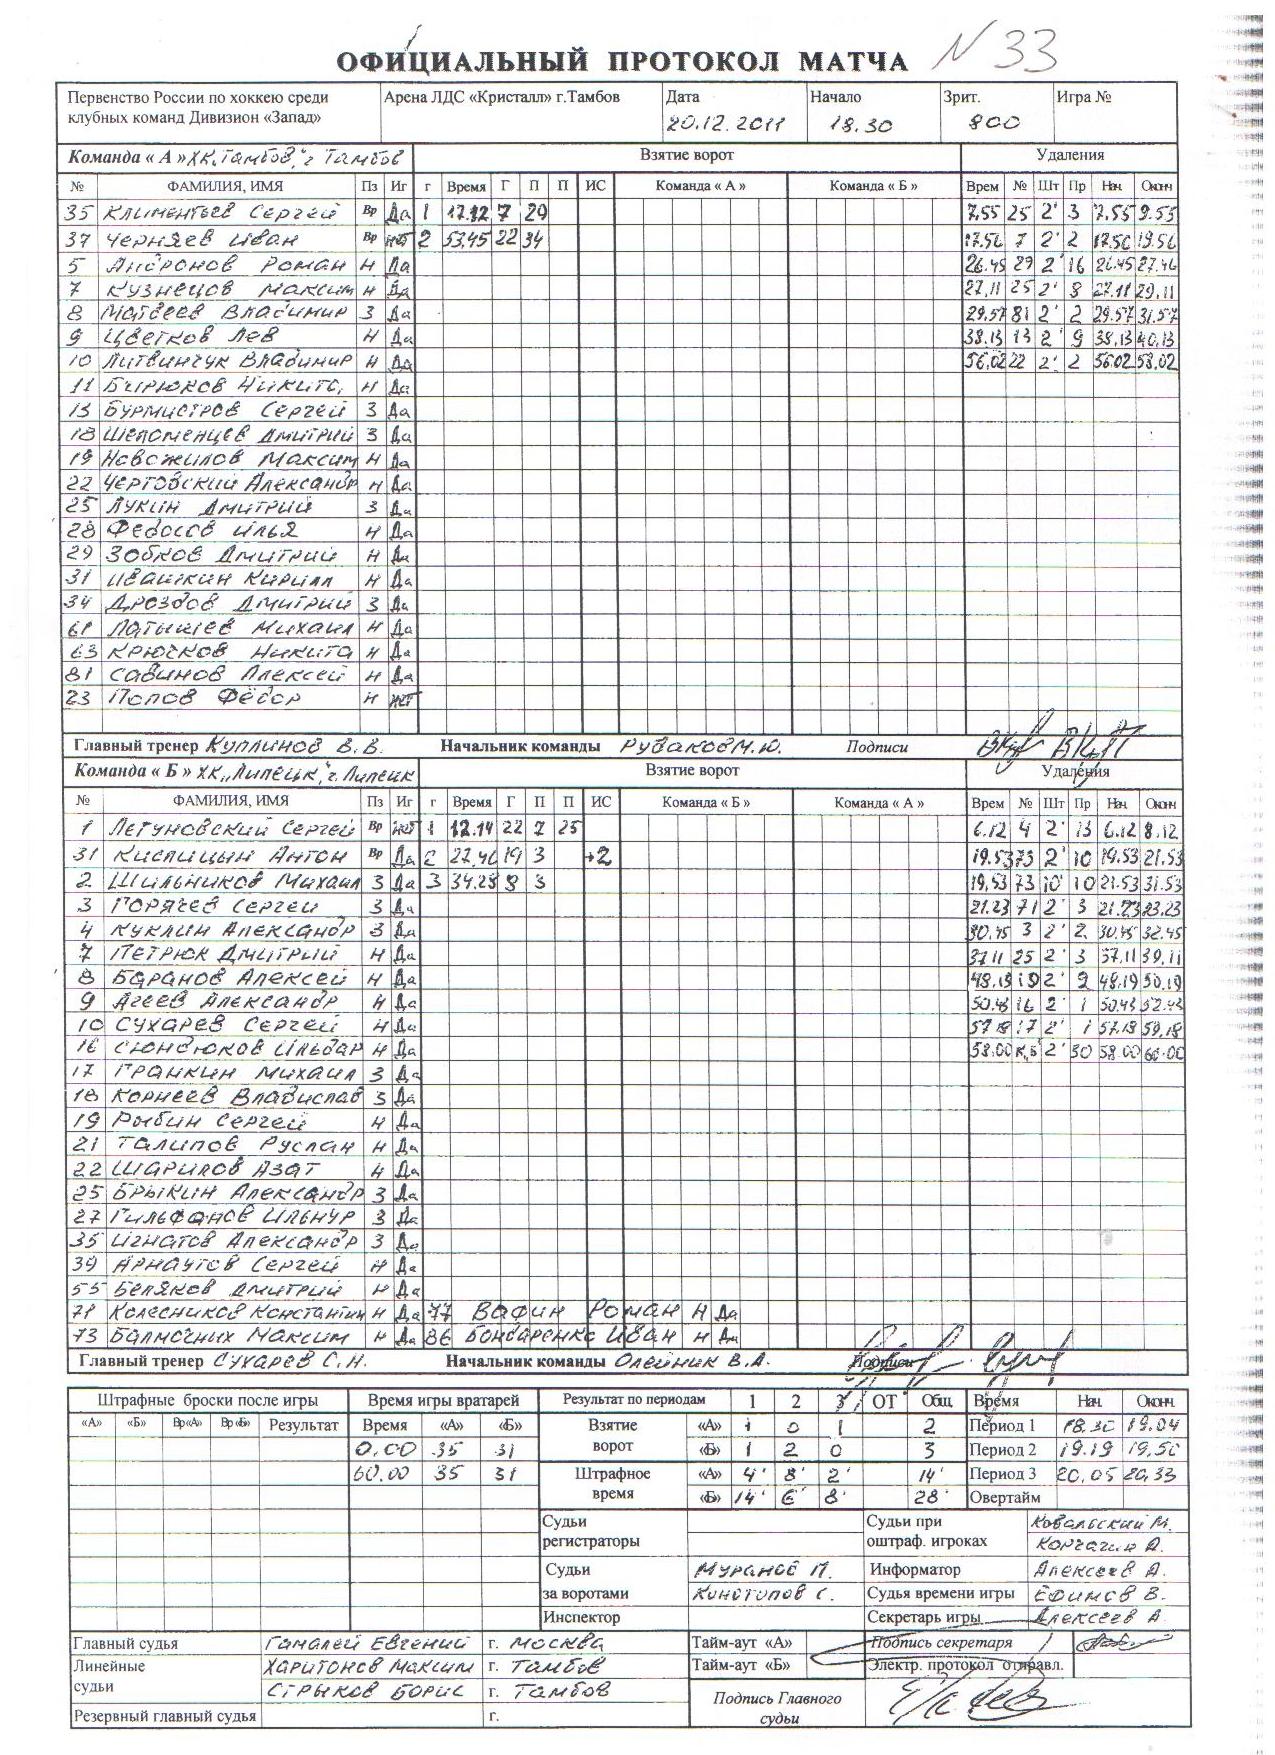 ОФИЦИАЛЬНЫЙ ПРОТОКОЛ МАТЧА N 33
Первенство России по хоккею среди клубных команд Дивизион «Запад» Арена ЛДС «Кристалл» г.Тамбов Дата 20.12.2011 Начало 18.30 Зрит. 800 Игра №
Команда « А » ХК "Тамбов" г Тамбов Взятие ворот Удаления
№ ФАМИЛИЯ, ИМЯ Пз Иг г Время Г П П ИС Команда « А » Команда « Б » Врем № Шт Пр Нач. Оконч
35 Климентьев Сергей Вр Да 1 17.12 7 29 7.55 25 2' 3 7.55 9.55
37 Черняев Иван Вр нет 2 53.45 22 34 17.56 7 2' 2 17.56 19.56
5 Андронов Роман Н Да 26.45 29 2' 16 26.45 27.46
7 Кузнецов Максим Н Да 27.11 25 2' 8 27.11 29.11
8 Матвеев Владимир З Да 29.57 81 2' 2 29.57 31.57
9 Цветков Лев Н Да 38.13 13 2' 9 38.13 40.13
10 Литвинчук Владимир Н Да 56.02 22 2' 2 56.02 58.02
11 Бирюков Никита Н Да
13 Бурмистров Сергей З Да
18 Шеломенцев Дмитрий З Да
19 Новожилов Максим Н Да
22 Чертовский Александр Н Да
25 Лукин Дмитрий З Да
28 Федосов Илья Н Да
29 Зобков Дмитрий Н Да
31 Ивашкин Кирилл Н Да
34 Дроздов Дмитрий З Да
61 Латышев Михаил Н Да
63 Крючков Никита Н Да
81 Савинов Алексей Н Да
23 Попов Фёдор Н нет
Главный тренер Куплинов В.В. Начальник команды Рудаков М.Ю. Подписи
Команда « Б » ХК "Липецк" г. Липецк Взятие ворот Удаления
№ ФАМИЛИЯ, ИМЯ Пз Иг г Время Г П П ИС Команда « Б » Команда « А » Врем № Шт Пр Нач. Оконч
1 Легуновский Сергей Вр нет 1 12.14 22 7 25 6.12 4 2' 13 6.12 8.12
31 Кислицын Антон Вр Да 2 27.46 19 3 +2 19.53 73 2' 10 19.53 21.53
2 Шильников Михаил З Да 3 34.28 8 3 19.53 73 10' 10 21.53 31.53
3 Горячев Сергей З Да 21.23 71 2' 3 21.23 23.23
4 Куклин Александр З Да 30.45 3 2' 2 30.45 32.45
7 Петрюк Дмитрий Н Да 37.11 25 2' 3 37.11 39.11
8 Баранов Алексей Н Да 48.19 19 2' 9 48.19 50.19
9 Агеев Александр Н Да 50.43 16 2' 1 50.43 52.43
10 Сухарев Сергей Н Да 57.18 17 2' 1 57.18 59.18
16 Сюндюков Ильдар Н Да 58.00 К,Б 2' 30 58.00 60.00
17 Гранкин Михаил З Да
18 Корнеев Владислав З Да
19 Рыбин Сергей Н Да
21 Талипов Руслан Н Да
22 Шарипов Азат Н Да
25 Брыкин Александр З Да
27 Гильфанов Ильнур З Да
35 Игнатов Александр З Да
39 Арнаутов Сергей Н Да
55 Беляков Дмитрий Н Да
71 Колесников Константин Н Да 77 Вафин Роман Н Да
73 Максим Н Да 86 Бондаренко Иван Н Да
Главный тренер Сухарев С.Н. Начальник команды Олейник В.А. Подписи
Штрафные броски после игры Время игры вратарей Результат по периодам 1 2 3 ОТ Общ Время Нач. Оконч.
«А» «Б» Вр«А» Вр«Б» Результат Время «А» «Б» Взятие ворот «А» 1 0 1 2 Период 1 18.30 19.04
0.00 35 31 «Б» 1 2 0 3 Период 2 19.19 19.50
60.00 35 31 Штрафное время «А» 4' 8' 2' 14' Период 3 20.05 20.33
«Б» 14' 6' 8' 28' Овертайм
Судьи регистраторы Судьи при оштраф. игроках Ковальский М.
Корчагин А.
Судьи за воротами Муранов П. Информатор Алексеев А.
Конотопов С. Судья времени игры Ефимов В.
Инспектор Секретарь игры Алексеев А
Главный судья Гамалей Евгений г. Москва Тайм-аут «А» Подпись секретаря
Линейные судьи Харитонов Максим г. Тамбов Тайм-аут «Б» Электр. протокол отправл.
Стрыков Борис г. Тамбов Подпись Главного судьи
Резервный главный судья г.